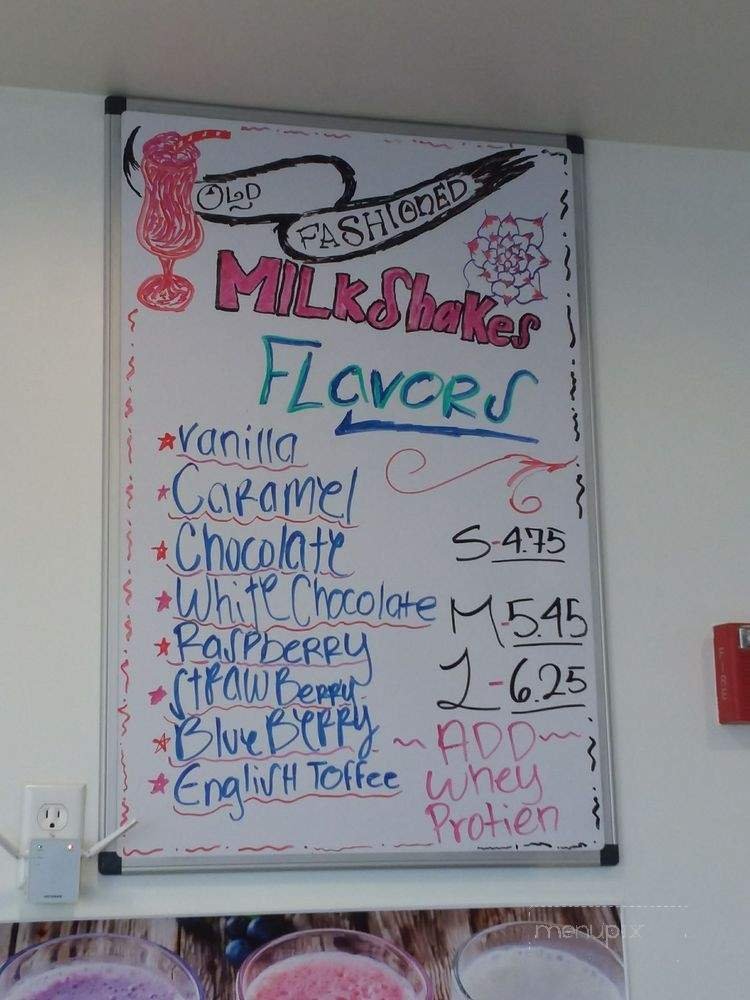 OLD
FASHIONED
MILKShaKes
FLavORS
vanilla
CaRaMel
Chocolate
White Chocolate
RaspbeRRy
StRaWBeRRy
BlueBeRRy
EngliSH Toffee
S-4.75
M-5.45
L-6.25
~ADD~
Whey
Protien
FIRE
menupix